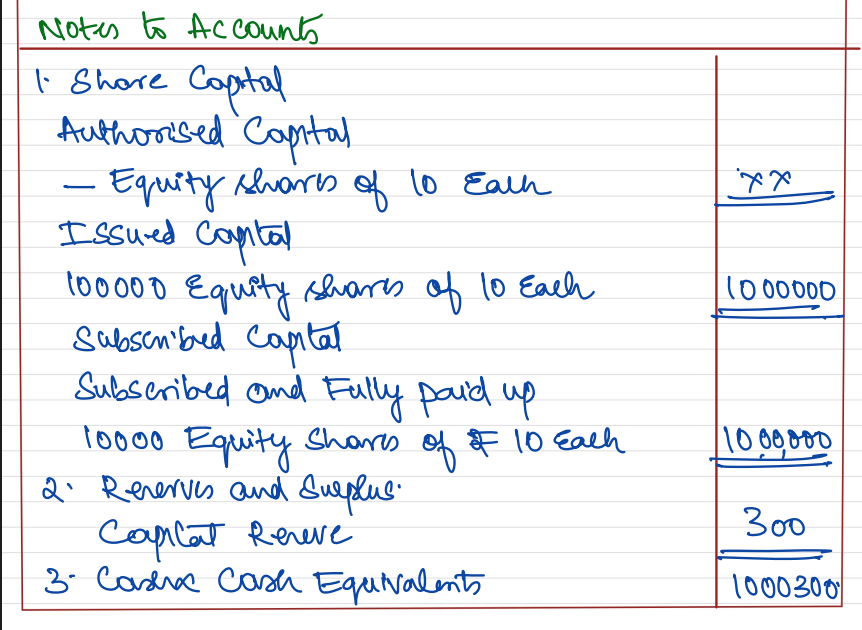 Notes to Accounts
1. Share Capital
Authorised Capital
— Equity shares of 10 Each xx
Issued Capital
100000 Equity shares of 10 Each 1000000
Subscribed Capital
Subscribed and Fully paid up
10000 Equity Shares of ₹ 10 Each 10,00,000
2. Reserves and Surplus.
Capital Reserve 300
3. Cash & Cash Equivalents 1000300